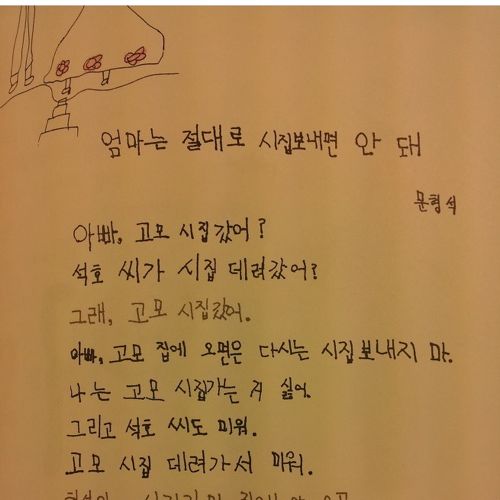 엄마는 절대로 시집보내면 안 돼
문형석
아빠, 고모 시집갔어?
석호 씨가 시집 데려갔어?
그래, 고모 시집갔어.
아빠, 고모 집에 오면은 다시는 시집보내지 마.
나는 고모 시집가는 거 싫어.
그리고 석호 씨도 미워.
고모 시집 데려가서 미워.